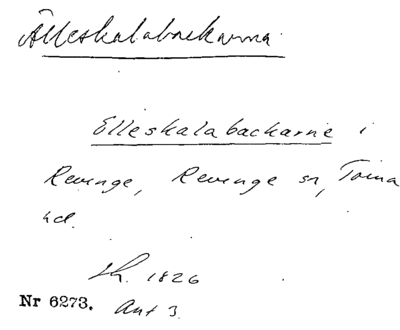 Älleskalabackarna
Elleskalabackarne i
Revinge, Revinge sn, Torna
hd.
Sk. 1826
Nr 6273. Akt 3